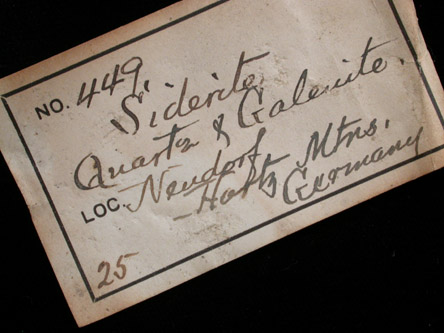 NO. 449.
Siderite,
Quartz & Galenite.
LOC. Neudorf
- Hartz Mtns,
Germany
25